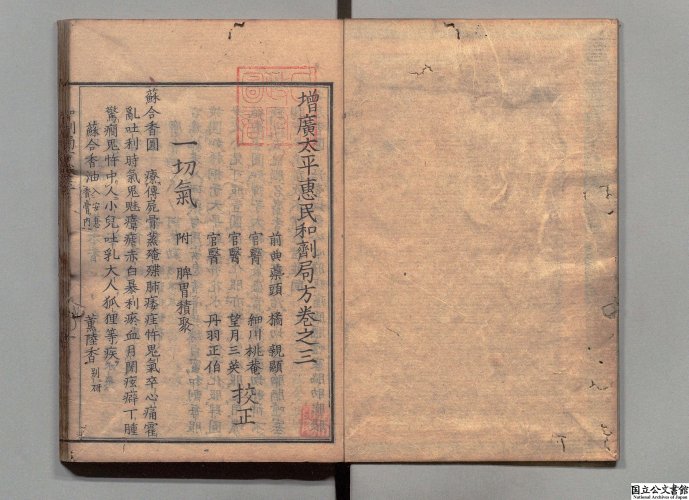 增廣太平惠民和劑局方卷之三
前典藥頭 橘 親顯
官醫 細川桃菴
官醫 望月三英
官醫 丹羽正伯 校正
一切氣 附 脾胃積聚
蘇合香圓 療傳屍骨蒸殗殜肺痿疰忤鬼氣卒心痛霍
亂吐利時氣鬼魅瘴瘧赤白暴利瘀血月閉痃癖丁腫
驚癎鬼忤中人小兒吐乳大人狐狸等疾
蘇合香油 入安息香膏內 薰陸香 別研
国立公文書館
National Archives of Japan